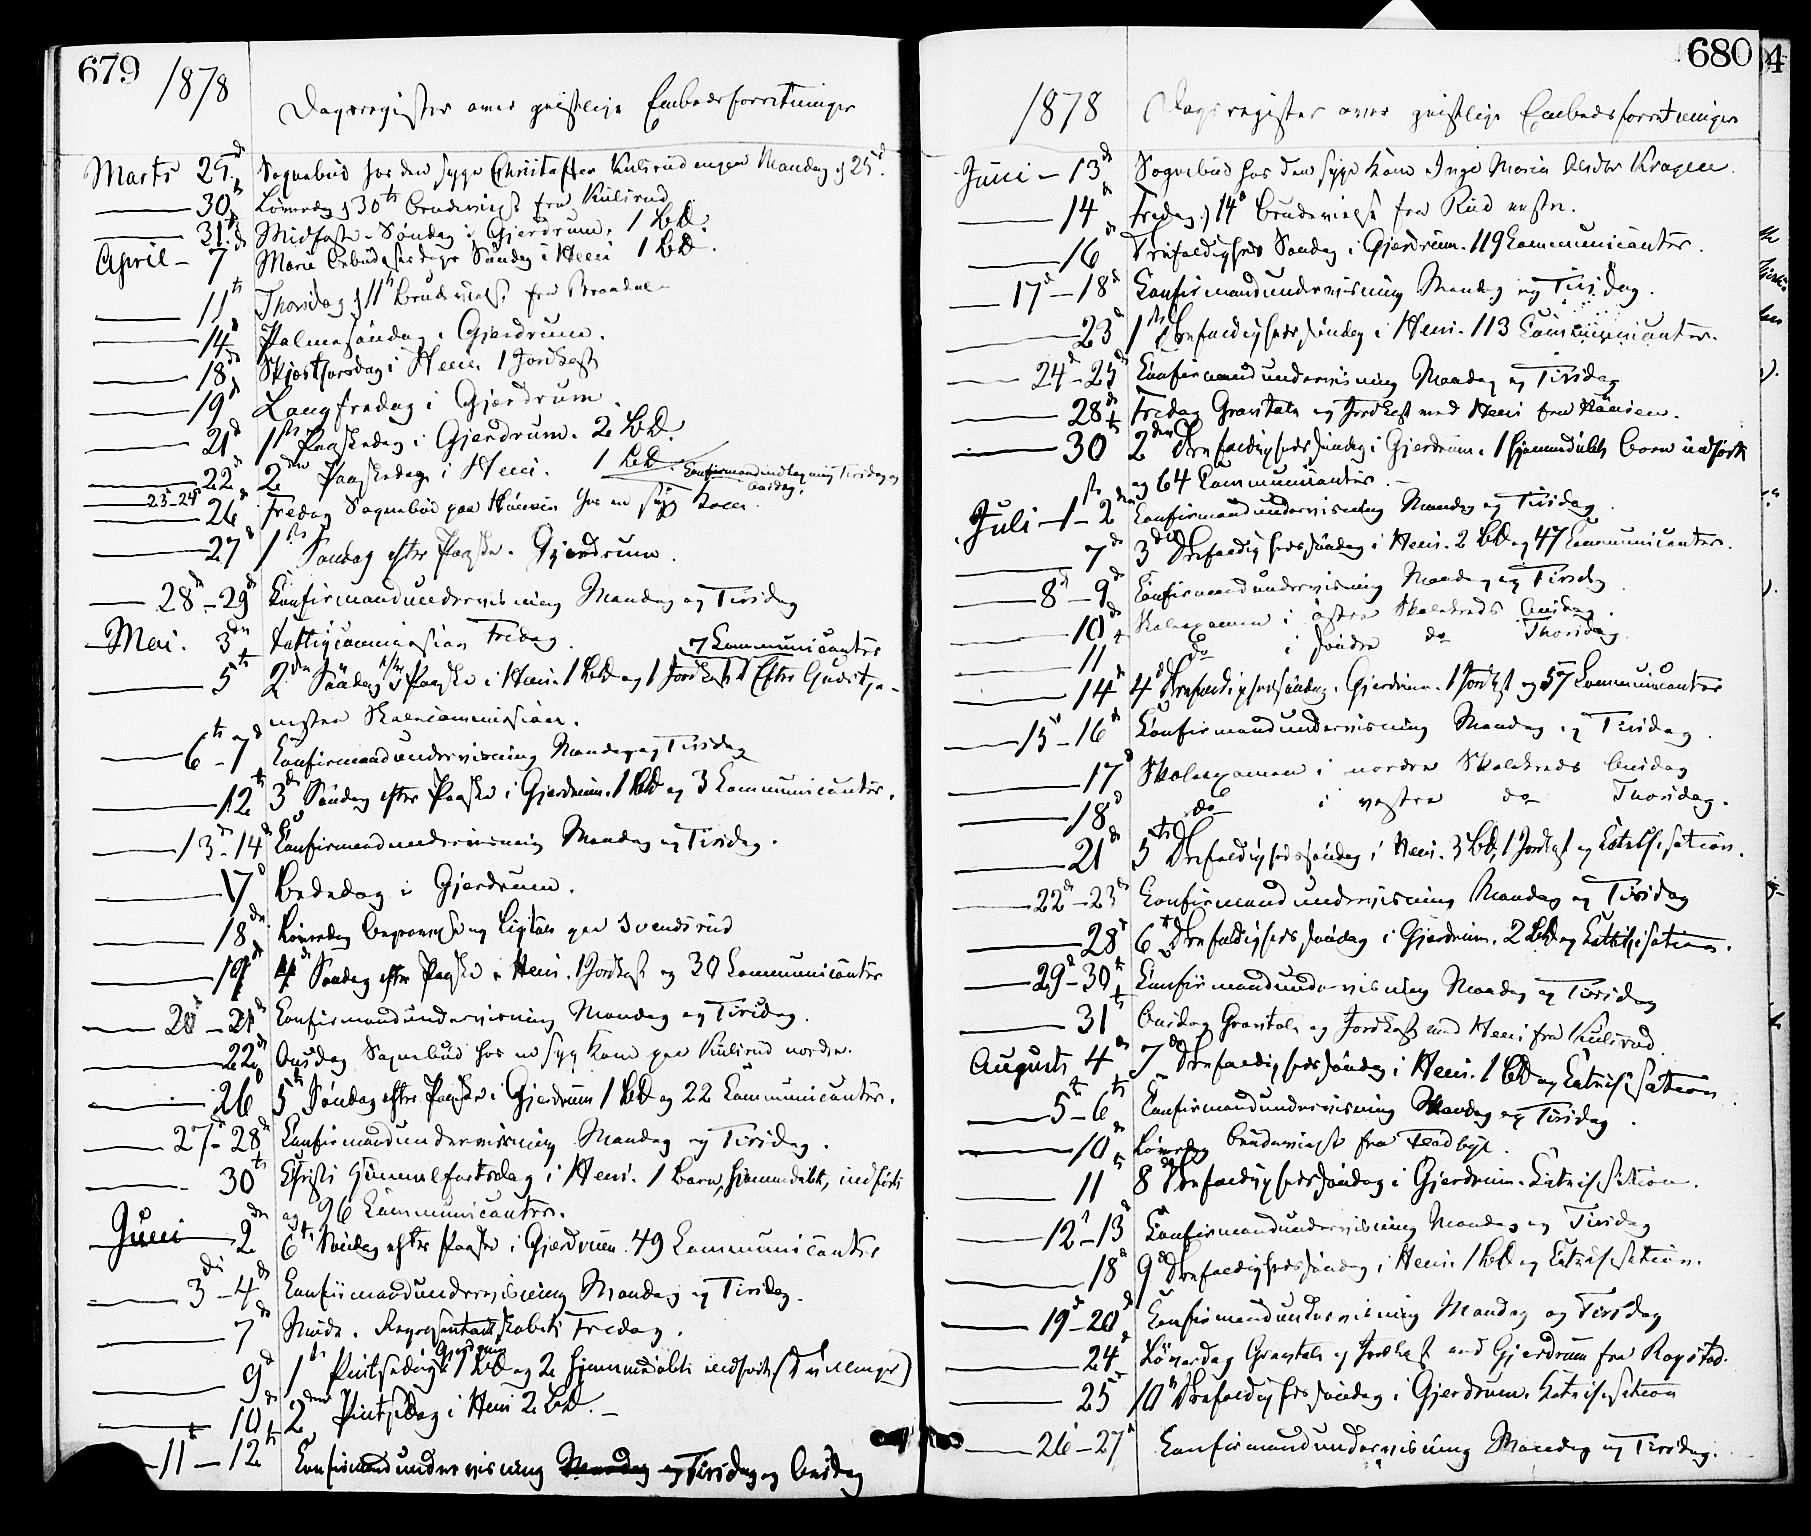 679
1878
Dagsregister over geistlige Embedsforretninger
Marts 25de Sognebud hos den syge Christoffer Kulsrudengen Mandag d 25de
30te Løverdag d 30te Brudevielse fra Kulsrud
31te Midfaste-Søndag i Gjerdrum. 1 bD.
April - 7de Mariæ Bebudelsesdags Søndag i Heni 1 bD.
11te Thorsdag d 11te Brudevielse fra
14de Palmesøndag i Gjerdrum.
18de Skjærthorsdag i Heni. 1 Jordkast
19de Langfredag i Gjerdrum.
21de 1ste Paaskedag i Gjerdrum. 2 bD.
22de 2den Paaskedag i Heni. 1 bD.
23-24de Confirmandindtagning Tirsdag og Onsdag.
26de Fredag Sognebud paa hos en syg Kone.
27de 1ste Søndag efter Paaske. Gjerdrum.
28de-29de Confirmandundervisning Mandag og Tirsdag
Mai. 3die Fattigcommission Fredag
5te 2den Søndag efter Paaske i Heni. 1 bD og 1 Jordkast 7 Communicanter Efter Gudstje-
nesten Skolecommission.
6te-7de Confirmandundervisning Mandag og Tirsdag
12te 3die Søndag efter Paaske i Gjerdrum. 1 bD og 3 Communicanter.
13de-14de Confirmandundervisning Mandag og Tirsdag.
17de Bededag i Gjerdrum.
18de Løverdag Begravelse og Ligtale paa Svendsrud
19de 4de Søndag efter Paaske i Heni. 1 Jordkast og 30 Communicanter
20de-21de Confirmandundervisning Mandag og Tirsdag.
22de Onsdag Sognebud hos en syg Kone paa Kulsrud nordre.
26 5te Søndag efter Paaske i Gjerdrum 1 bD og 22 Communicanter.
27de-28de Confirmandundervisning Mandag og Tirsdag.
30te Christi Himmelfartsdag i Heni. 1 Barn, hjemmedøbt, indført
og 26 Communicanter.
Juni 2den 6te Søndag efter Paaske i Gjerdrum. 49 Communicanter
3die-4de Confirmandundervisning Mandag og Tirsdag.
7de Møde i Repræsentantskabet Fredag.
9de 1ste Pintsedag Gjerdrum 1 bD og 2 hjemmedøbte indførte (Tvillinger)
10de 2den Pintsedag i Heni 2 bD.
11te-12te Confirmandundervisning Mandag og Tirsdag og Onsdag
680
1878
Dagsregister over geistlige Embedsforretninger
Juni - 13de Sognebud hos den syge Kone Inge Maria Kragen
14de Fredag d 14de Brudevielse fra Rud vestre.
16 Trefoldigheds Søndag i Gjerdrum. 119 Communicanter.
17de-18de Confirmandundervisning Mandag og Tirsdag.
23de 1ste Trefoldighedssøndag i Heni. 113 Communicanter.
24de-25de Confirmandundervisning Mandag og Tirsdag
28de Fredag Gravtale og Jordkast ved Heni fra
30te 2den Trefoldighedssøndag i Gjerdrum. 1 hjemmedøbt Barn indført
og 64 Communicanter.
Juli 1ste-2den Confirmandundervisning Mandag og Tirsdag
7de 3die Trefoldighedssøndag i Heni. 2 bD og 47 Communicanter.
8de-9de Confirmandundervisning Mandag og Tirsdag
10de Skoleexamen i østre Skolekreds Onsdag.
11te do i søndre do Thorsdag
14de 4de Trefoldighedssøndag. Gjerdrum. 1 Jordkast og 57 Communicanter
15de-16de Confirmandundervisning Mandag og Tirsdag.
17de Skoleexamen i nordre Skolekreds Onsdag
18de do i vestre do Thorsdag.
21de 5te Trefoldighedssøndag i Heni. 3 bD, 1 Jordkast og Catechisation.
22de-23de Confirmandundervisning Mandag og Tirsdag
28de 6te Trefoldighedssøndag i Gjerdrum. 2 bD og Catechisation.
29de-30te Confirmandundervisning Mandag og Tirsdag
31te Onsdag Gravtale og Jordkast ved Heni fra Kulsrud
Augusts 4de 7de Trefoldighedssøndag i Heni. 1 bD og Catechisation
5te-6te Confirmandundervisning Mandag og Tirsdag.
10de Løverdag Brudevielse fra
11te 8de Trefoldighedssøndag i Gjerdrum. Catechisation.
12te-13de Confirmandundervisning Mandag og Tirsdag
18de 9de Trefoldighedssøndag i Heni. 1 bD og Catechisation.
19de-20de Confirmandundervisning Mandag og Tirsdag
24de Løverdag Gravtale og Jordkast ved Gjerdrum fra Rogstad.
25de 10de Trefoldighedssøndag i Gjerdrum. Catechisation
26de-27de Confirmandundervisning Mandag og Tirsdag.
4